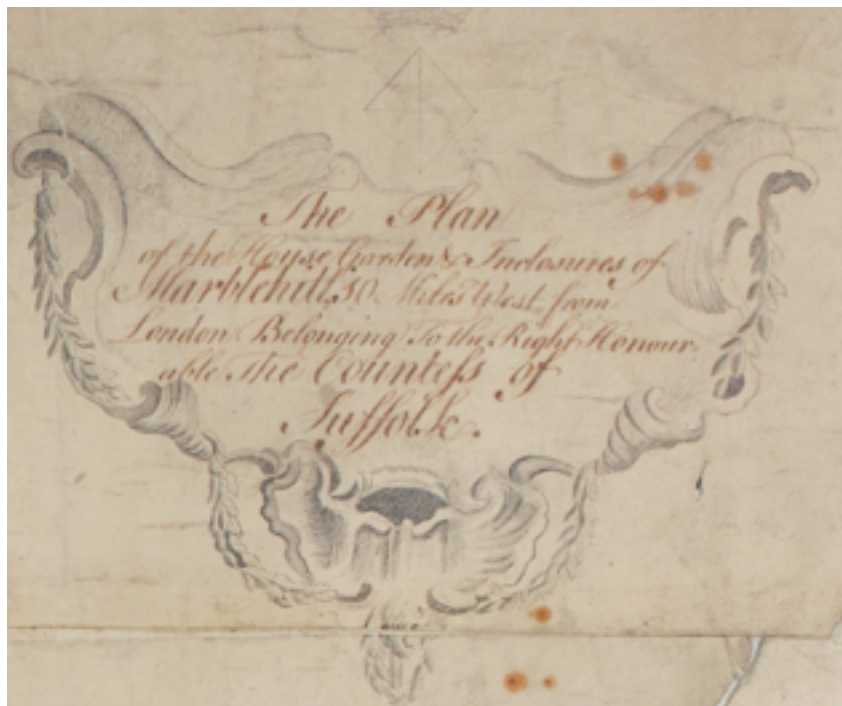 The Plan
of the House, Garden & Inclosures of
Marblehill, 10 Miles West from
London Belonging To the Right Honour
able The Countess of
Suffolk.